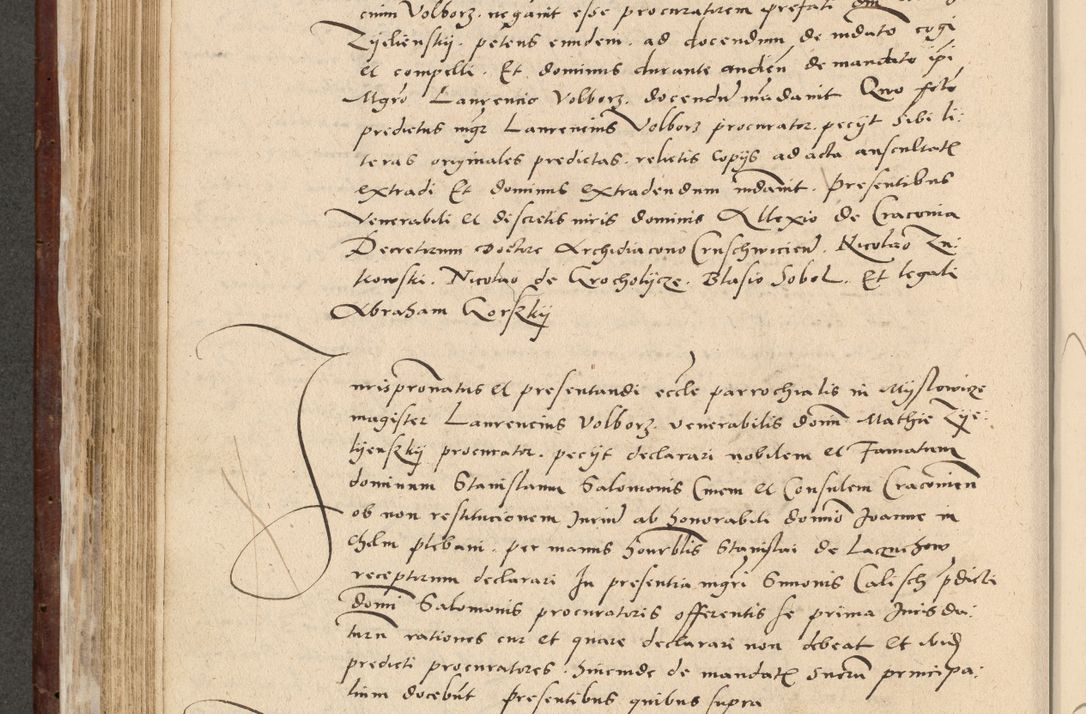 cium Volborz. negavit esse procuratorem prefati dni
Zyelienskij. petens eundem. ad docendum de mdato cogi
et compelli. Et dominus durante audien de mandato ipi
Mgro Laurentio Volborz. docendu mdavit Quo fcto
predictus mgr Laurencius Volborz procurator. pecijt sibi li:
teras originales predictas. relictis copijs ad acta auscultatis
extradi Et dominus extradendum mdavit. Presentibus
Venerabili et discretis viris dominis Allexio de Craconia
Decretorum Doctore Archidiacono Cruschwicien. Nicolao Zu:
kowski. Nicolao de Grocholijcze. Blasio Sobol. Et legali
Abraham Gorszkij
Jurispronatus et presentandi eccle parrochialis in Myslowicze
magister Laurencius Volborz. venerabilis domi Mathie Zije:
lijenszkij procurator. pecijt declarari nobilem et Famatum
dominum Stanislaum Salomonis Civem et Consulem Cracovien
ob non restitucionem Juriu ab honorabili domino Joanne in
Chelm plebani. per manus honrblis Stanislai de
receptorum declarari In presentia mgri Simonis Calisch pdicti
domi Salomonis procuratoris offerentis se prima Juris da:
turu rationes cur et quare declarari non debeat Et ibid
predicti procuratores. hincinde de mandatis suoru principa:
lium docebut Presentibus quibus supra